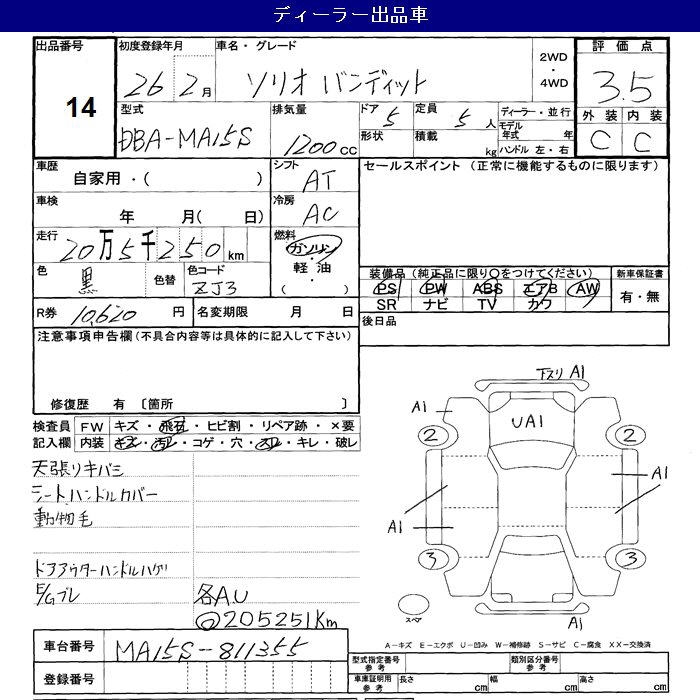 ディーラー出品車
出品番号 14
初度登録年月 26 2月
車名・グレード ソリオ バンディット
2WD・4WD
評価点 3.5
外装 C 内装 C
型式 DBA-MA15S
排気量 1200cc
ドア 5 形状
定員 5人 積載 kg
ディーラー・並行
モデル年式 年
ハンドル 左・右
車歴 自家用・( )
シフト AT
セールスポイント (正常に機能するものに限ります)
車検 年 月( 日)
冷房 AC
走行 20万5千250km
燃料 ガソリン・軽油・( )
色 黒 色替 色コード ZJ3
装備品 (純正品に限り○をつけてください)
新車保証書
PS PW ABS エアB AW
有・無
SR ナビ TV カワ
R券 10,620円 名変期限 月 日
後日品
注意事項申告欄 (不具合内容等は具体的に記入して下さい)
修復歴 有 〔箇所 〕
検査員記入欄
FW キズ・飛石・ヒビ割・リペア跡・×要
内装 キズ・汚レ・コゲ・穴・スレ・キレ・破レ
天張りキバミ
シートハンドルカバー
動物毛
ドアアウターハンドルハゲ
E/Gブレ
各AU
205251Km
下スリ A1
A1
UA1
2 2
A1
A1
3 3
スペア
A1
A-キズ E-エクボ U-凹み W-補修跡 S-サビ C-腐食 XX-交換済
車台番号 MA15S-811355
型式指定番号 参考
類別区分番号 参考
登録番号
車庫証明用 参考
長さ cm 幅 cm 高さ cm